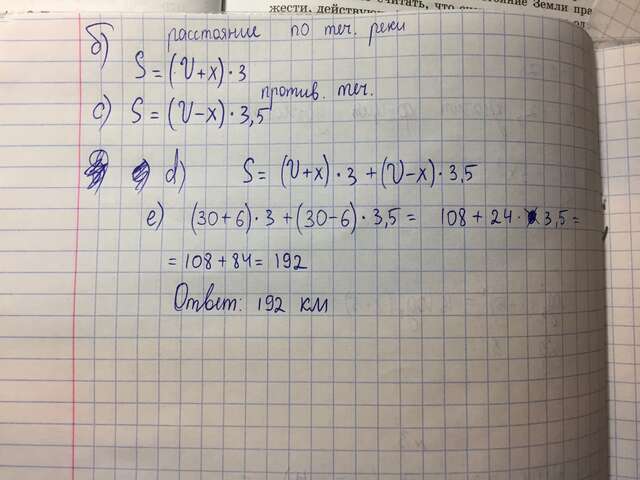 б) расстояние по теч. реки
S = (V+x)·3
против. теч.
c) S = (V-x)·3,5
d) S = (V+x)·3 + (V-x)·3,5
e) (30+6)·3 + (30-6)·3,5 = 108 + 24·3,5 =
= 108 + 84 = 192
Ответ: 192 км
жести, действую
читать, что
яние Земли пре